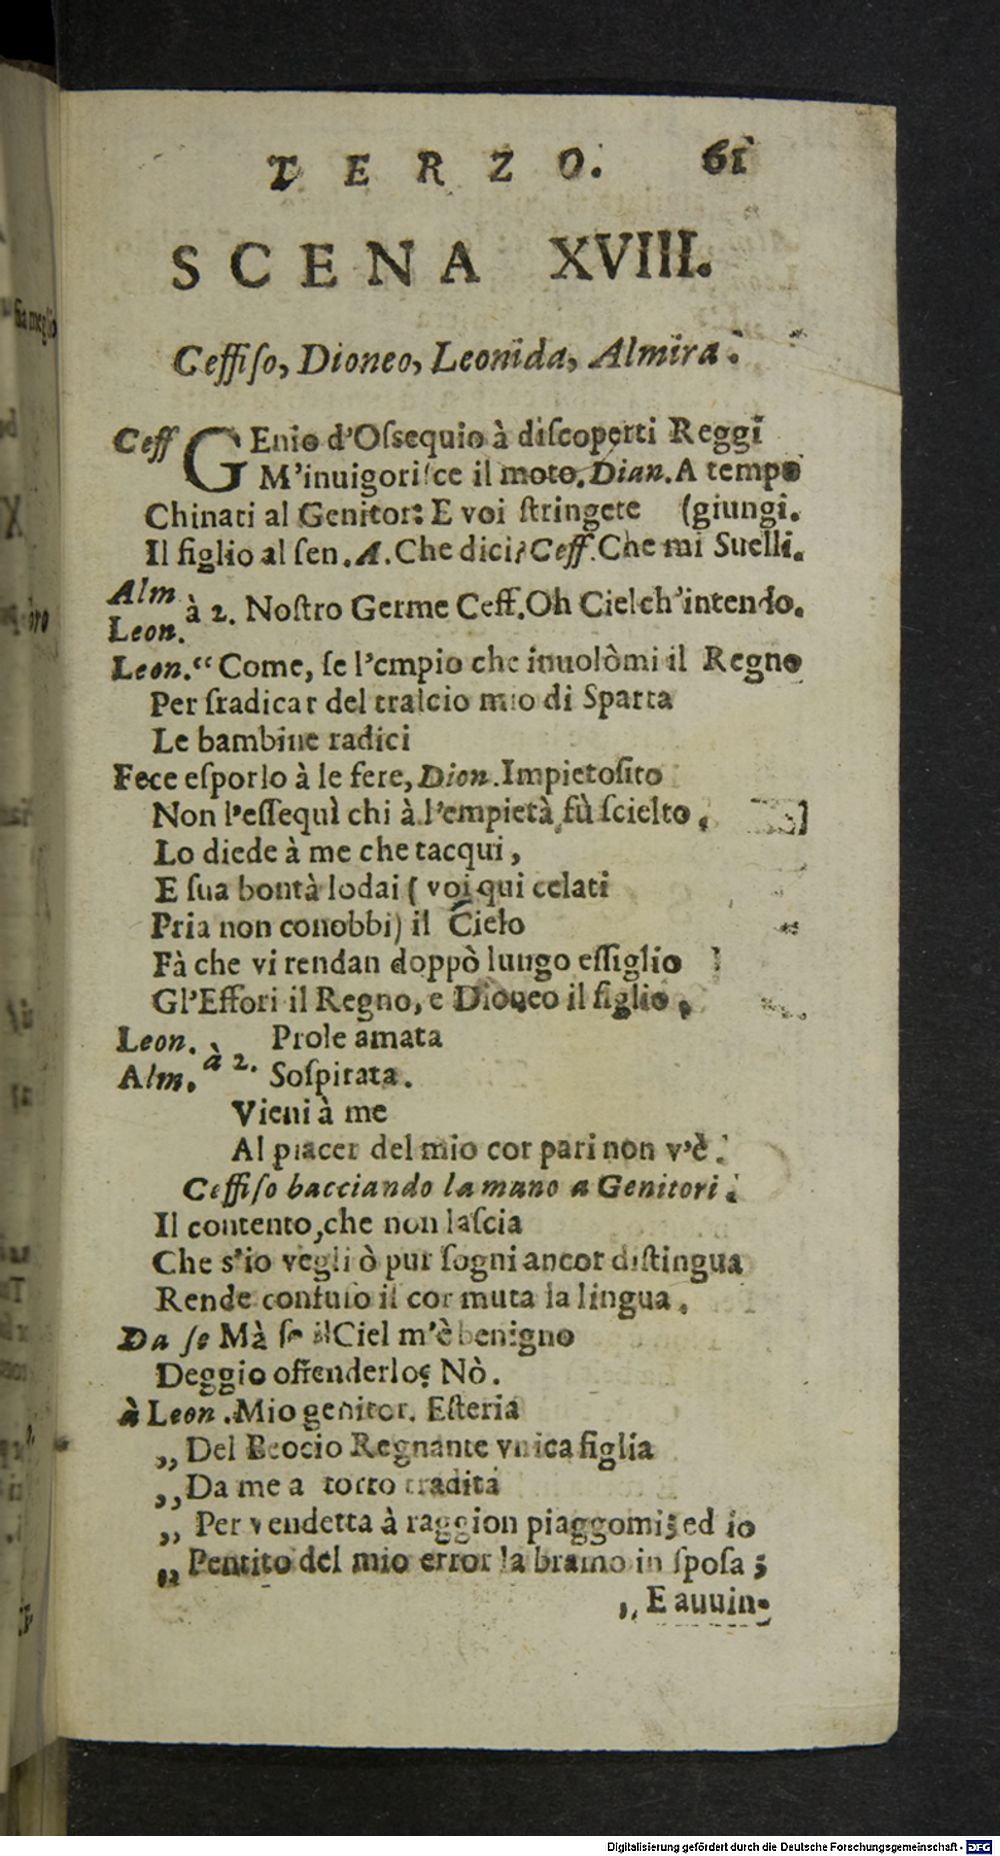 TERZO. 61
SCENA XVIII.
Ceffiſo, Dioneo, Leonida, Almira.
Ceff GEnio d'Oſsequio à diſcoperti Reggi
M'inuigoriſce il moto. Dian. A tempo
Chinati al Genitor: E voi ſtringete (giungi.
Il figlio al ſen. A. Che dici? Ceff. Che mi Suelli.
Alm
Leon. à 2. Noſtro Germe Ceff. Oh Ciel ch'intendo.
Leon. “ Come, ſe l'empio che inuolòmi il Regno
Per ſradicar del tralcio mio di Sparta
Le bambine radici
Fece eſporlo à le fere, Dion. Impietoſito
Non l'eſſequì chi à l'empietà fù ſcielto,
Lo diede à me che tacqui,
E ſua bontà lodai ( voi qui celati
Pria non conobbi) il Cielo
Fà che vi rendan doppò lungo eſſiglio
Gl'Effori il Regno, e Dioneo il figlio,
Leon. à 2. Prole amata
Alm. Soſpirata.
Vieni à me
Al piacer del mio cor pari non v'è.
Ceffiſo bacciando la mano a Genitori.
Il contento, che non laſcia
Che s'io vegli ò pur ſogni ancor diſtingua
Rende confuſo il cor muta la lingua.
Da ſe Mà ſe il Ciel m'è benigno
Deggio offenderlo? Nò.
à Leon. Mio genitor. Eſteria
„ Del Beocio Regnante vnica figlia
„ Da me a torto tradita
„ Per vendetta à raggion piaggomi; ed io
„ Pentito del mio error la bramo in ſpoſa;
„ E auuin-
Digitalisierung gefördert durch die Deutsche Forschungsgemeinschaft - DFG